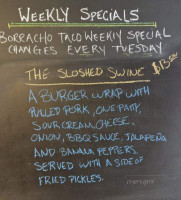 WEEKLY SPECIALS
BORRACHO TACO WEEKLY SPECIAL
CHANGES EVERY TUESDAY
THE SLOSHED SWINE
A BURGER WRAP WITH
PULLED PORK, ONE PATTY,
SOUR CREAM, CHEESE,
ONION, BBQ SAUCE, JALAPEÑO
AND BANANA PEPPERS.
SERVED WITH A SIDE OF
FRIED PICKLES.